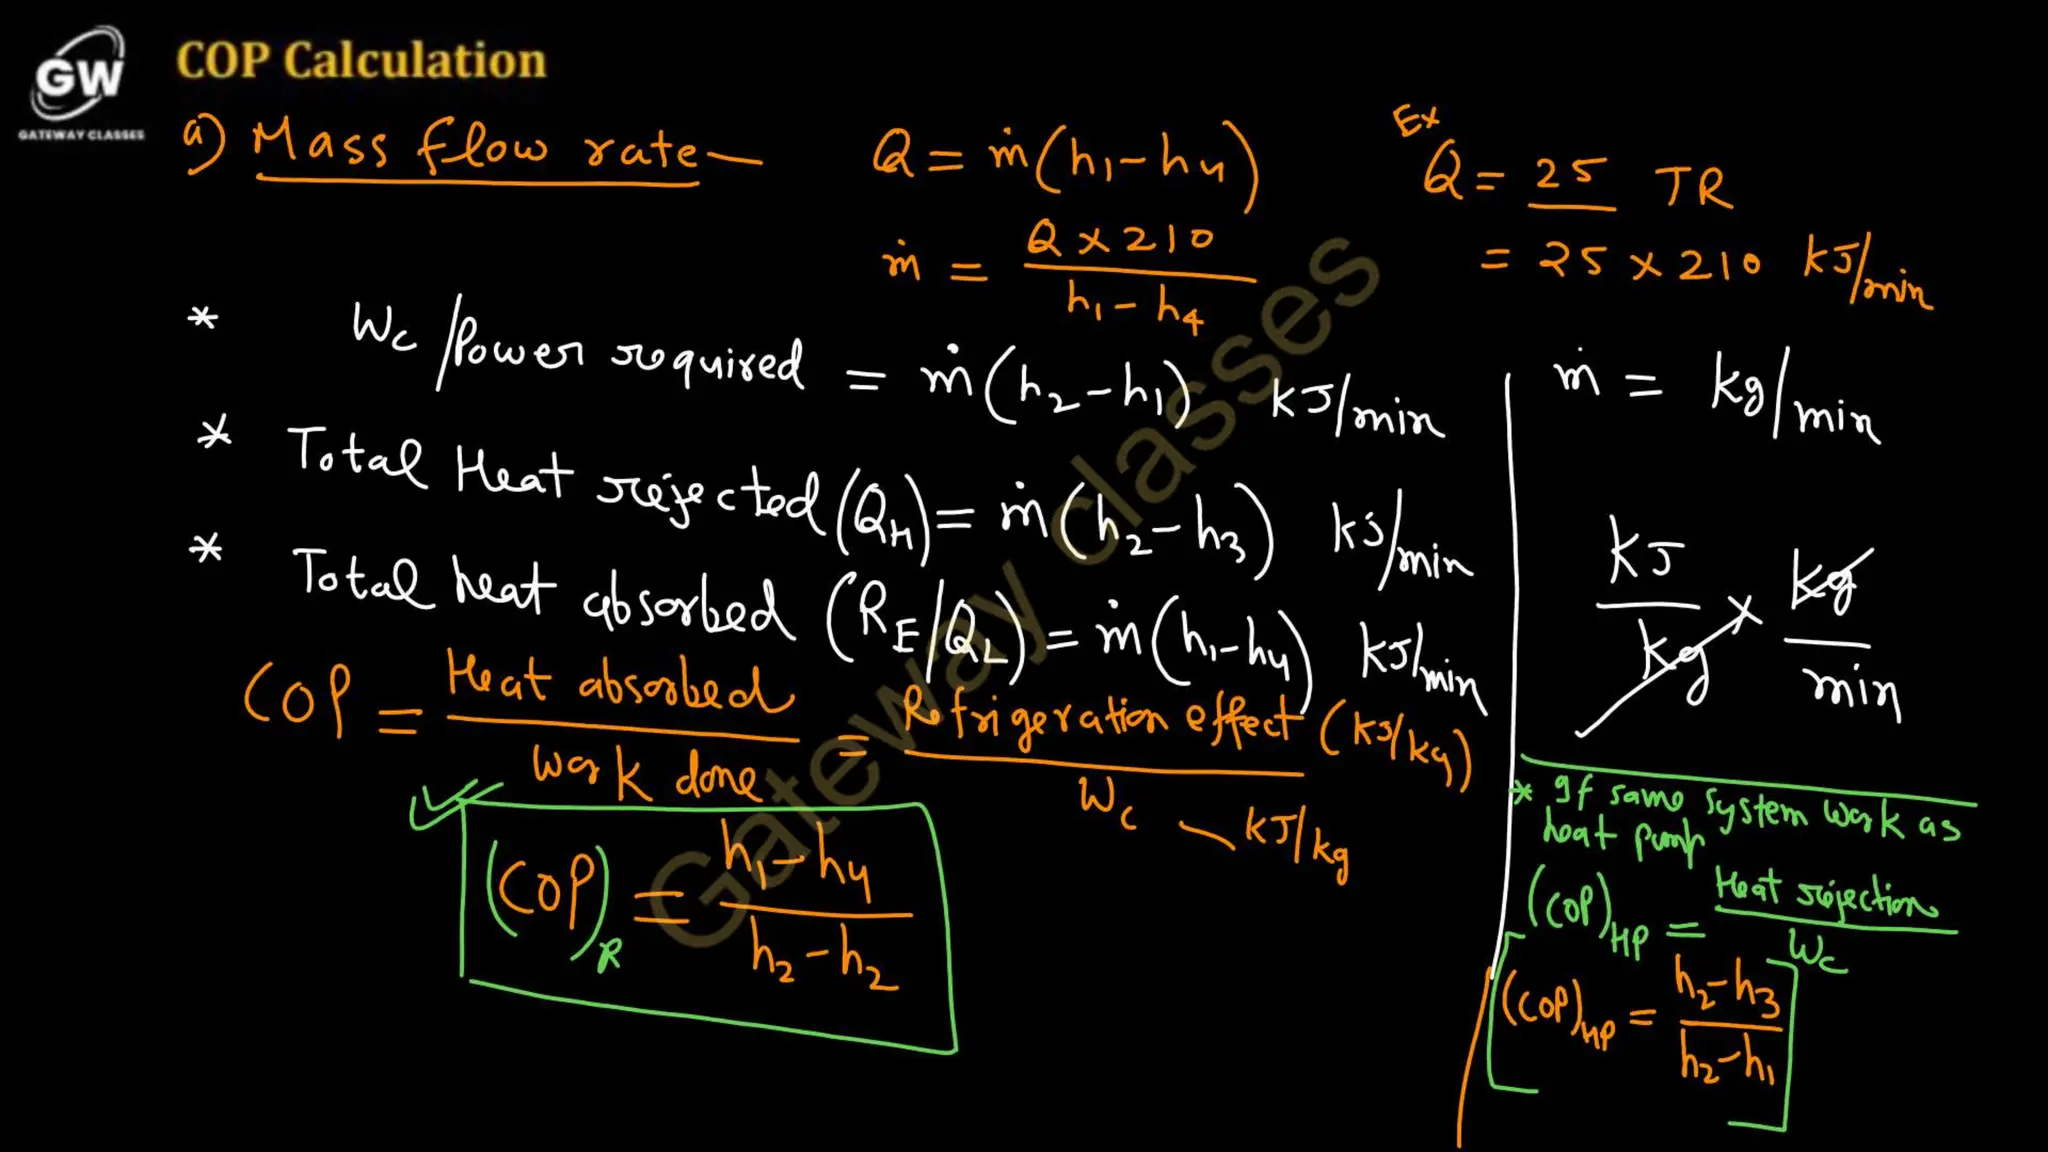 GW
GATEWAY CLASSES
COP Calculation
a) Mass flow rate —
Q = ṁ(h1 - h4)
ṁ = Q × 210 / h1 - h4
Ex
Q = 25 TR
= 25 × 210 kJ/min
* Wc /Power required = ṁ(h2 - h1) kJ/min
* Total Heat rejected (QH) = ṁ(h2 - h3) kJ/min
* Total heat absorbed (RE/QL) = ṁ(h1 - h4) kJ/min
COP = Heat absorbed / Work done = Refrigeration effect (kJ/kg) / Wc — kJ/kg
(COP)R = h1 - h4 / h2 - h2
ṁ = kg/min
kJ/kg × kg/min
* If same system work as
heat pump
(COP)HP = Heat rejection / Wc
(COP)HP = h2 - h3 / h2 - h1
Gateway classes